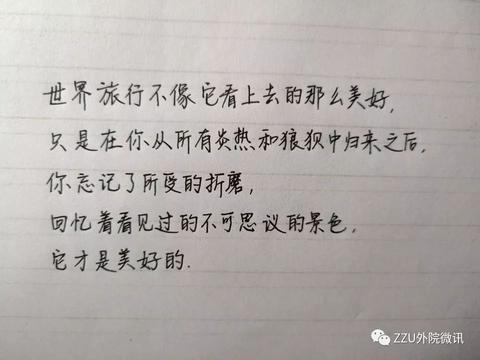 世界旅行不像它看上去的那么美好,
只是在你从所有炎热和狼狈中归来之后,
你忘记了所受的折磨,
回忆着看见过的不可思议的景色,
它才是美好的.
ZZU外院微讯